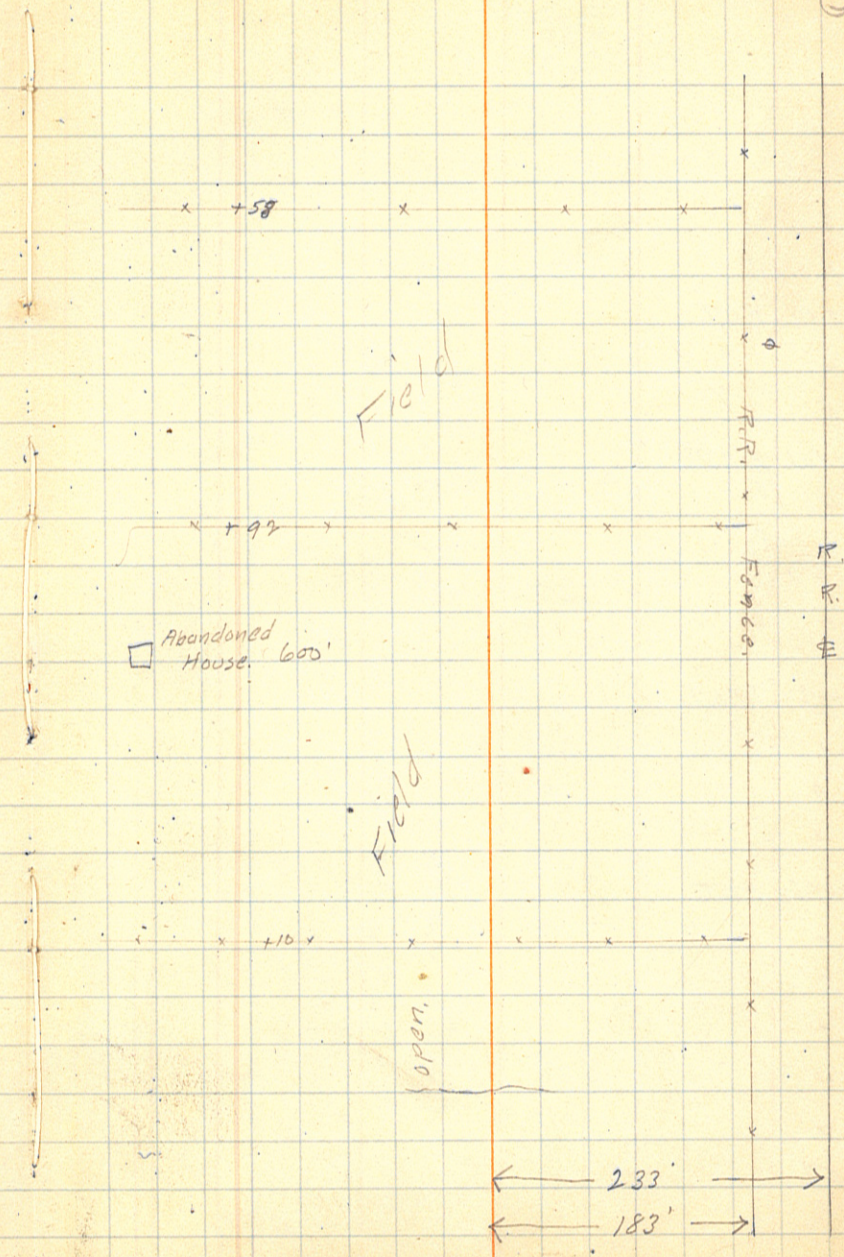 +58
Field
R.R. Fence.
+92
R.
R.
℄
Abandoned
House. 600'
Field
+10
open.
233'
183'